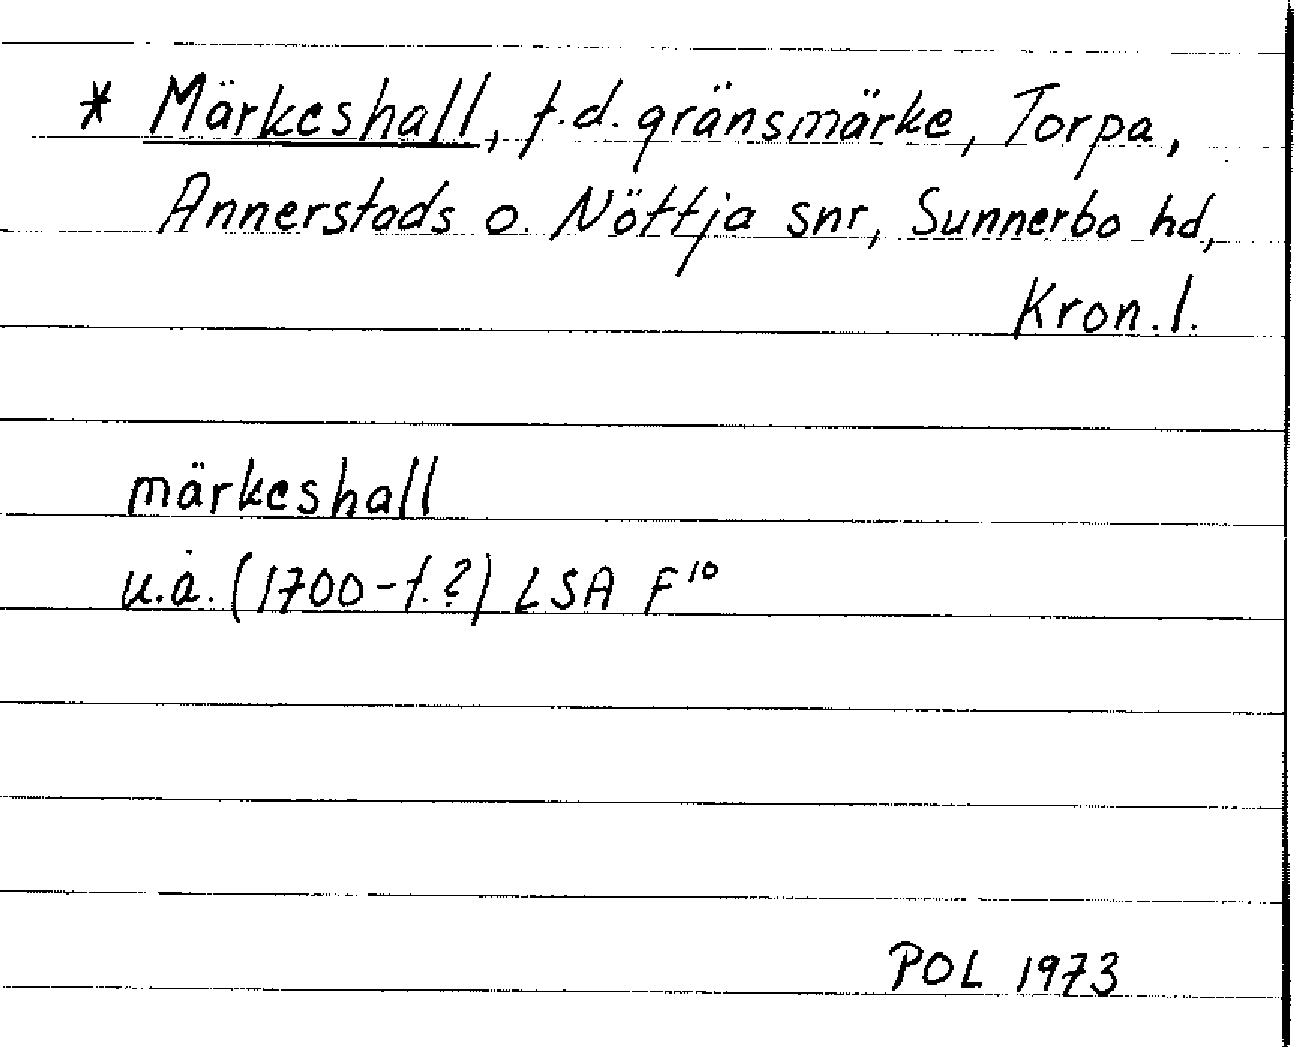 * Märkeshall, f.d. gränsmärke, Torpa,
Annerstads o. Nöttja snr, Sunnerbo hd,
Kron.l.
märkeshall
u.å. (1700-t.?) LSA F¹⁰
POL 1973